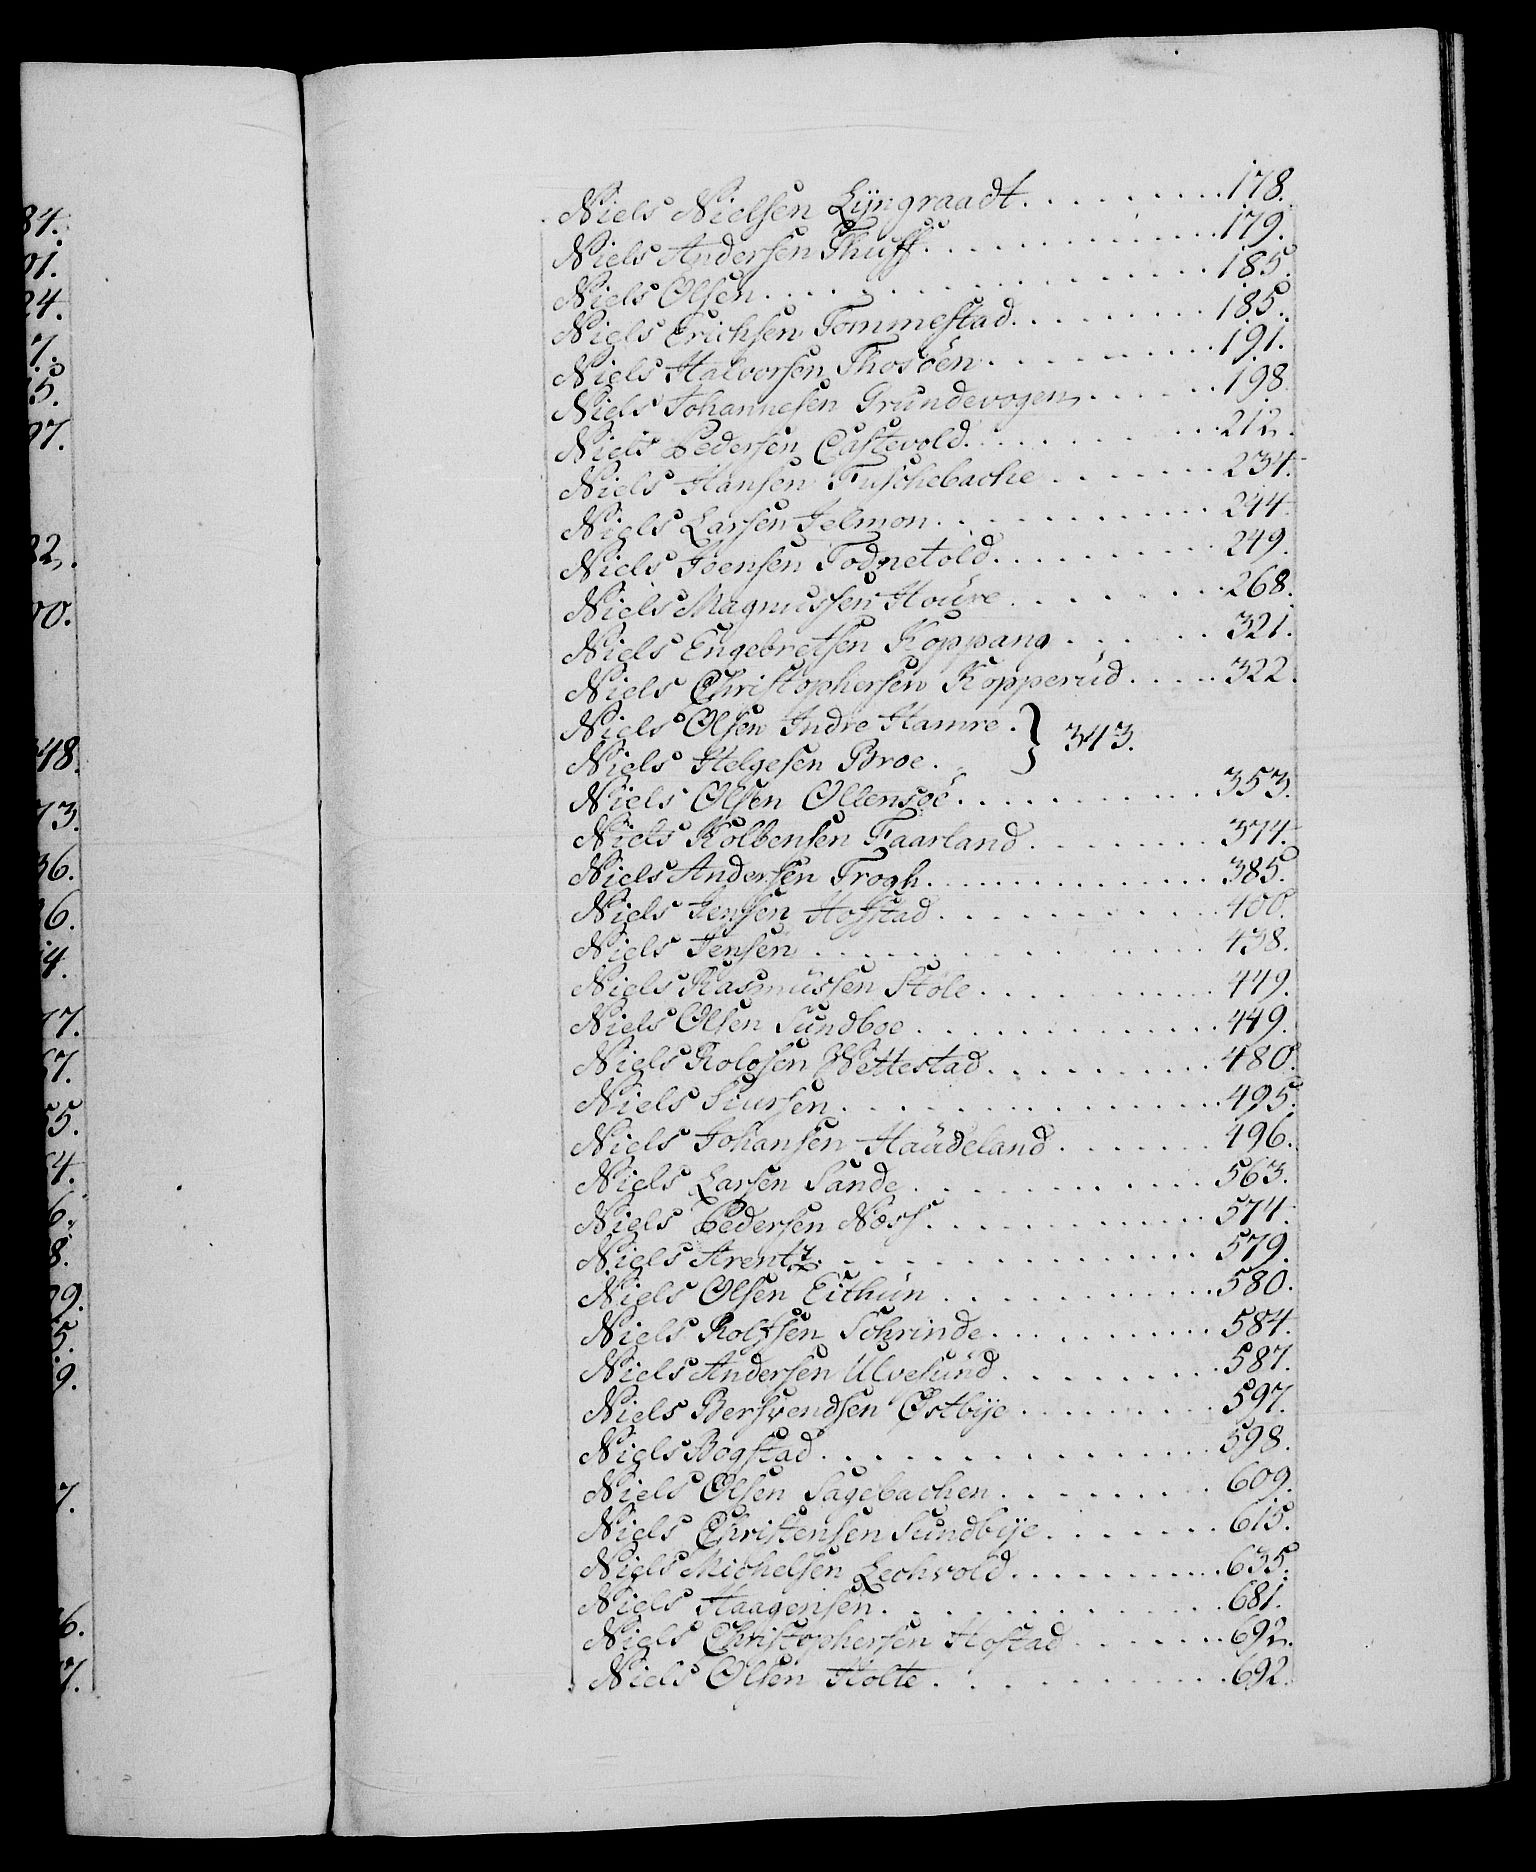 84.
01.
24.
7.
5.
97.
82.
00.
48.
73.
36.
6.
14.
17.
67.
5.
4.
6.
8.
9.
5.
9.
7.
6.
7.
Niels Nielsen Lÿngraadt . . . . . . . . . 178.
Niels Andersen Thuff . . . . . . . . . . . . 179.
Niels Olsen . . . . . . . . . . . . . . . 185.
Niels Erichsen Tommestad . . . . . . . . 185.
Niels Halvorsen Thosöen . . . . . . . . . 191.
Niels Johannesen Grundevogen . . . . . 198.
Niels Pedersen Castevold . . . . . . . . 212.
Niels Hansen Fuschebache . . . . . . . 234.
Niels Larsen Jelmon . . . . . . . . . . 244.
Niels Joensen Todnetold . . . . . . . . 249.
Niels Magnussen Houre . . . . . . . . 268.
Niels Engebretsen Koppang . . . . . . 321.
Niels Christophersen Kopperud . . . . . 322.
Niels Olsen Indre Hamre . } 343.
Niels Helgesen Broe .
Niels Olsen Ollensöe . . . . . . . . . . 353.
Niels Kolbensen Faarland . . . . . . . . 374.
Niels Andersen Trogh . . . . . . . . . . . 385.
Niels Jensen Hofstad . . . . . . . . . . 400.
Niels Jensen . . . . . . . . . . . . . . 438.
Niels Rasmussen Støle . . . . . . . . . 449.
Niels Olsen Sundboe . . . . . . . . . . . 449.
Niels Rolosen Wettestad . . . . . . . . . 480.
Niels Siursen . . . . . . . . . . . . . . 495.
Niels Johansen Haudeland . . . . . . . 496.
Niels Larsen Sande . . . . . . . . . . . 563.
Niels Pedersen Næss . . . . . . . . . . . 574.
Niels Arentz . . . . . . . . . . . . . . 579.
Niels Olsen Eithun . . . . . . . . . . . 580.
Niels Rolfsen Schrinde . . . . . . . . . 584.
Niels Andersen Ulvesund . . . . . . . . . 587.
Niels Bersvendsen Østbÿe . . . . . . . . 597.
Niels Bogstad . . . . . . . . . . . . . . 598.
Niels Olsen Sagebachen . . . . . . . . . 609.
Niels Christensen Sundbÿe . . . . . . . 615.
Niels Michelsen Lechvold . . . . . . . . . 635.
Niels Haagensen . . . . . . . . . . . . . 681.
Niels Christophersen Hofstad . . . . . . 692.
Niels Olsen Holte . . . . . . . . . . . . 692.